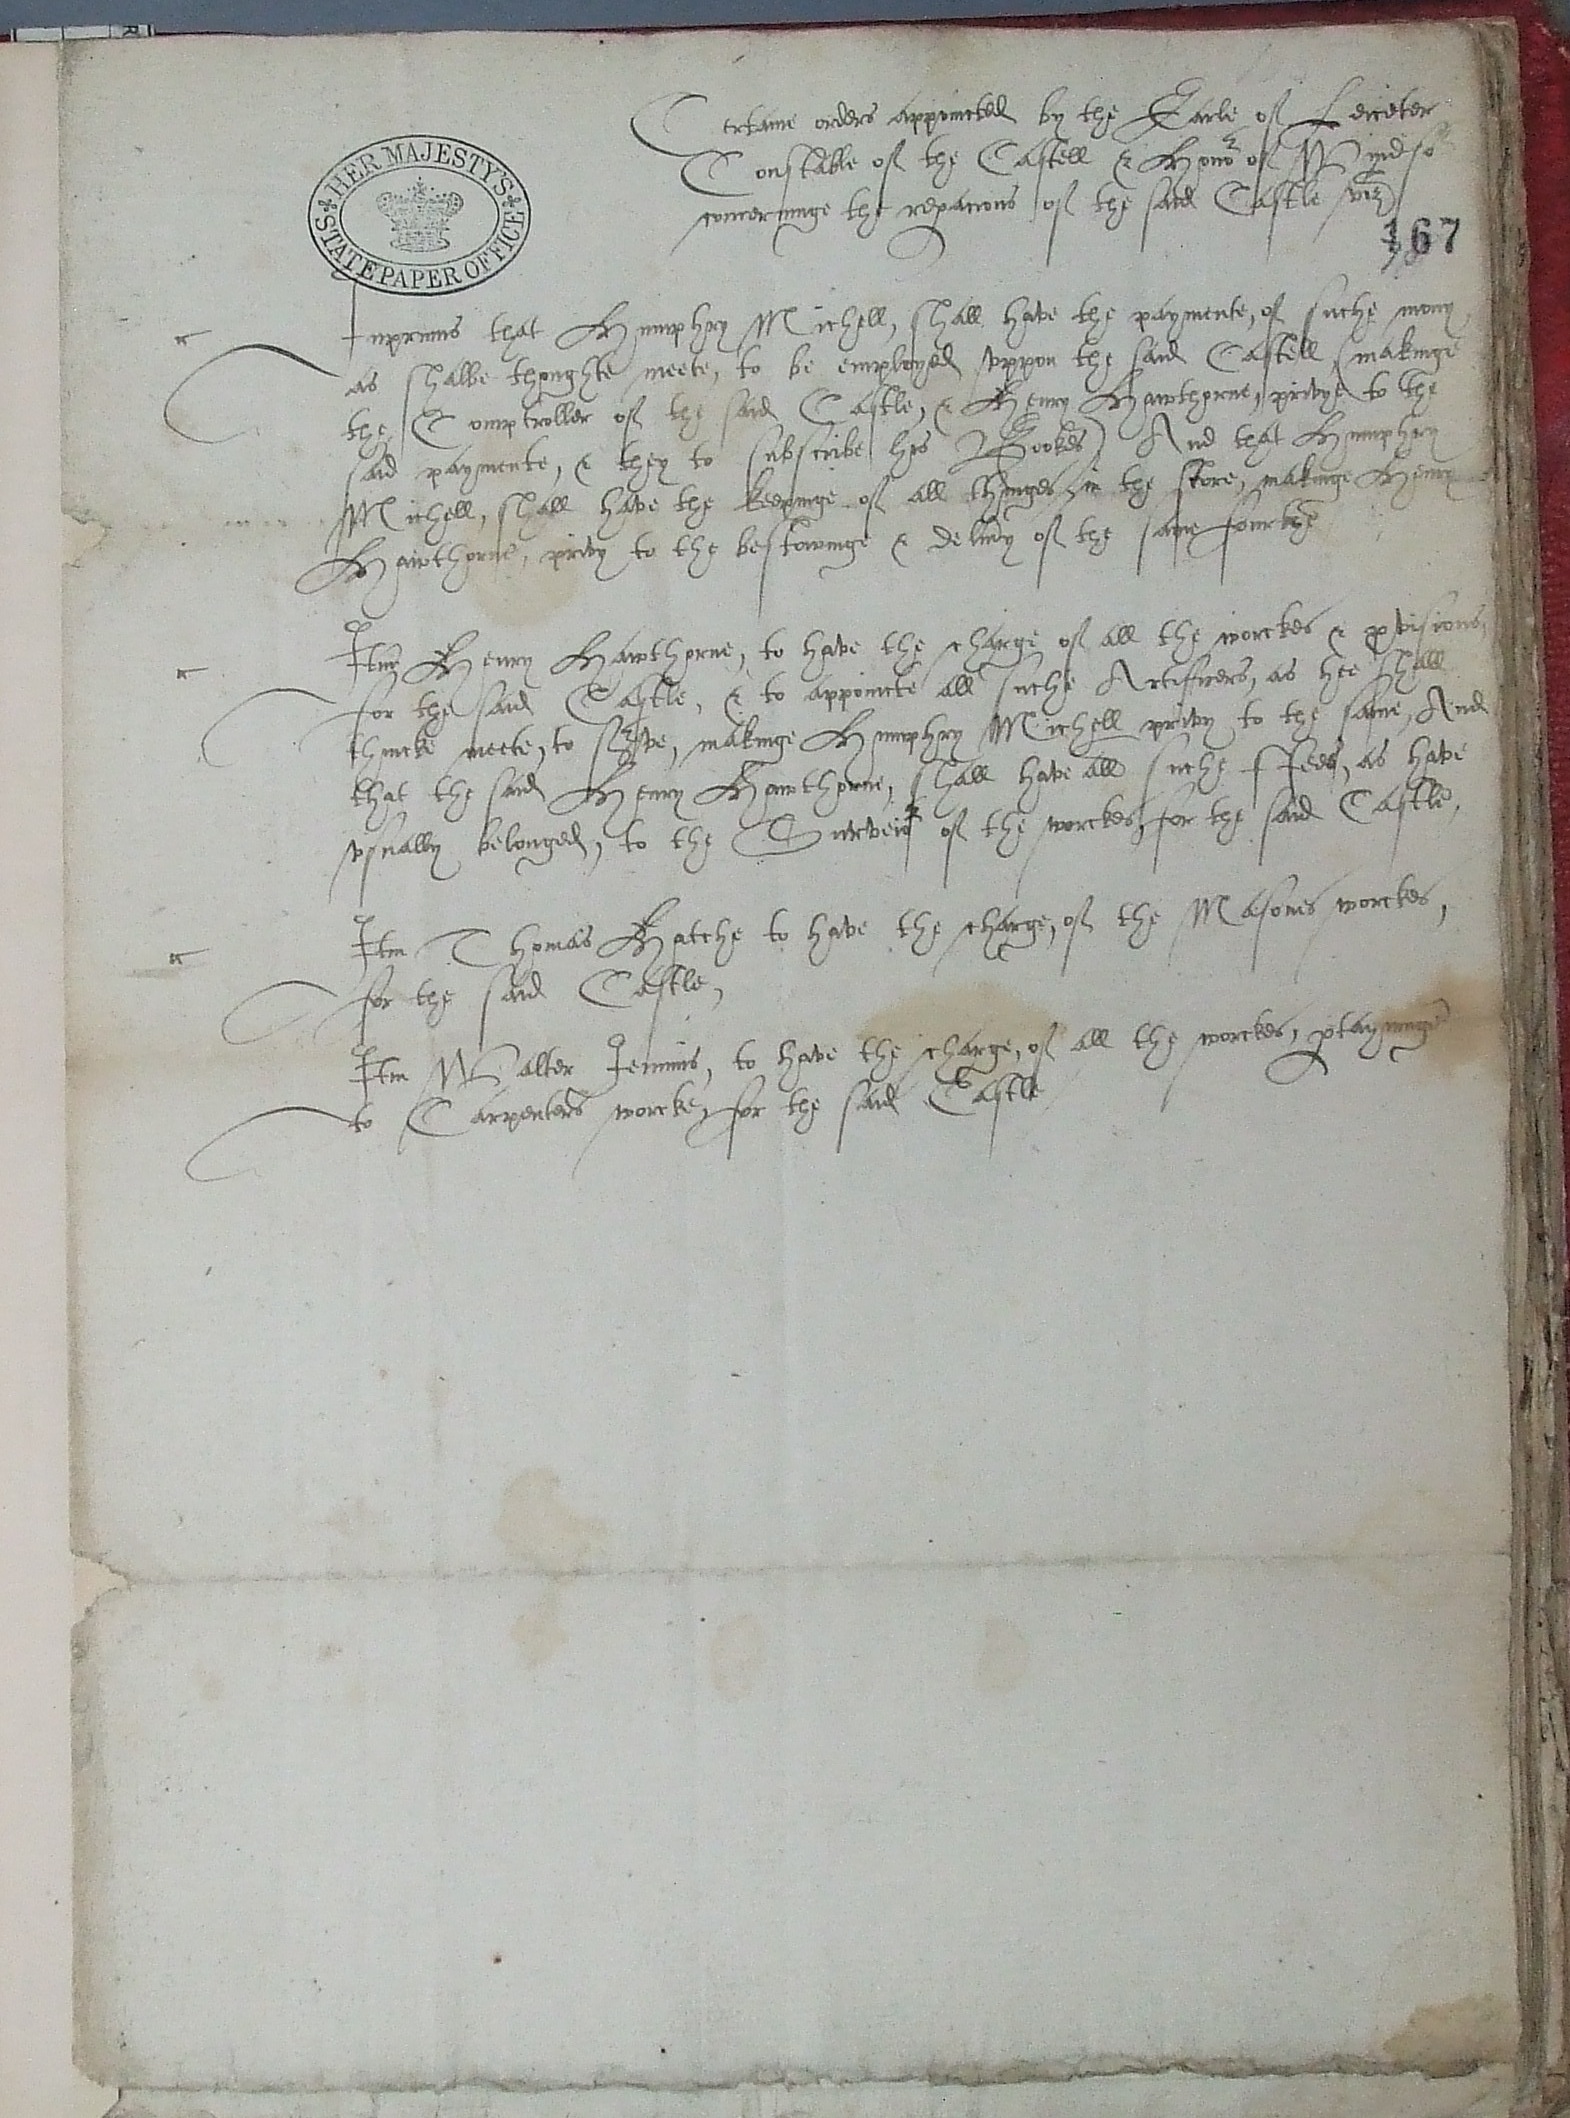 Certaine orders appoincted by the Earle of Leicester
Constable of the Castell & Honor of Wyndsor
concerninge the repacions of the said Castle viz
HER MAJESTY'S
STATE PAPER OFFICE
167
Inprimis that Humphry Michell, shall have the paymente, of suche mony
as shalbe thoughte meete, to be employed vppon the said Castell, makinge
the Comptroller of the said Castle, & Henry Hawthorne, privye to the
said paymente, & they to subscribe his Bookes) And that Humphry
Michell, shall have the keepinge of all thinges in the store, makinge Henry
Hawthorne, privy to the bestowinge & delivy of the same
Itm Henry Hawthorne, to have the charge of all the worckes & pvisions,
for the said Castle, & to appoincte all suche Artificers, as hee shall
thincke meete, to srve, makinge Humphry Michell privy to the same, And
that the said Henry Hawthorne, shall have all suche ffees, as have
vsually belonged, to the Surveior of the worckes, for the said Castle,
Itm Thomas Hatche to have the charge, of the Masons worckes,
for the said Castle,
Itm Walter Jennins, to have the charge, of all the worckes, ptayninge
to Carpenters worcke, for the said Castle